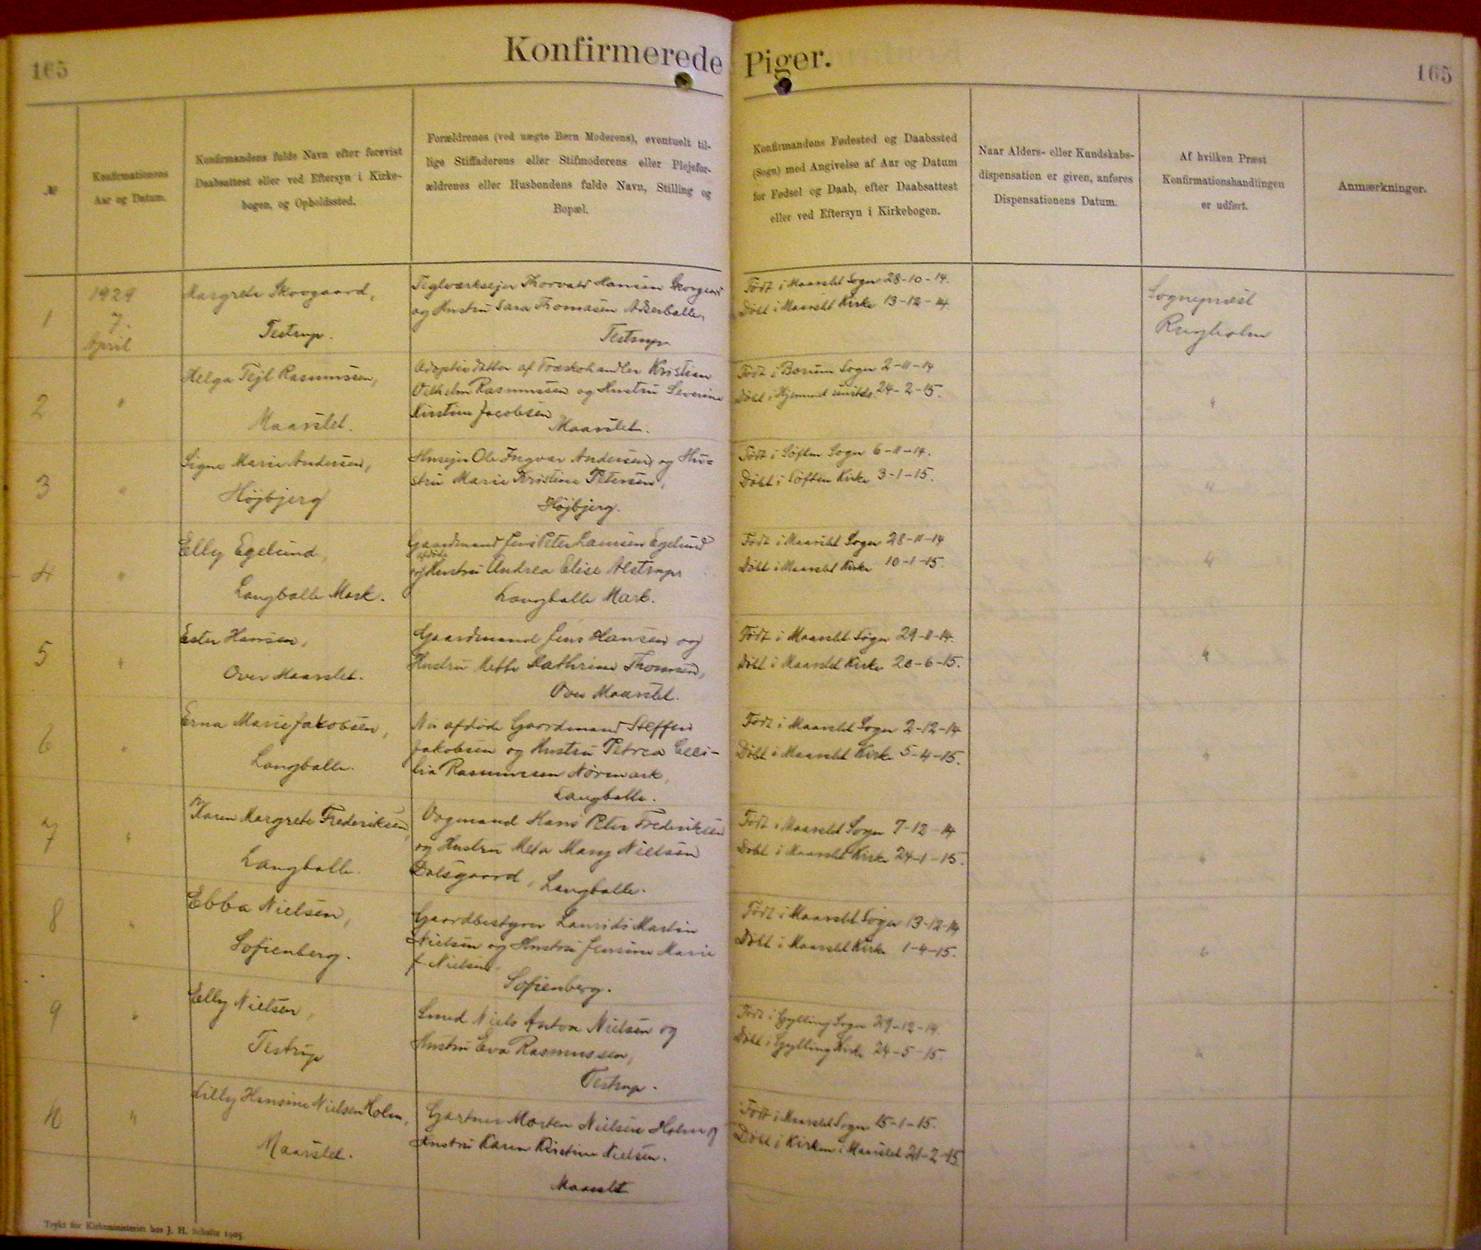 165
Konfirmerede Piger.
165
№
Konfirmationens
Aar og Datum.
Konfirmandens fulde Navn efter forevist
Daabsattest eller ved Eftersyn i Kirke-
bogen, og Opholdssted.
Forældrenes (ved uægte Børn Moderens), eventuelt til-
lige Stiffaderens eller Stifmoderens eller Plejefor-
ældrenes eller Husbondens fulde Navn, Stilling og
Bopæl.
Konfirmandens Fødested og Daabssted
(Sogn) med Angivelse af Aar og Datum
for Fødsel og Daab, efter Daabsattest
eller ved Eftersyn i Kirkebogen.
Naar Alders- eller Kundskabs-
dispensation er given, anføres
Dispensationens Datum.
Af hvilken Præst
Konfirmationshandlingen
er udført.
Anmærkninger.
1
1929
7.
April
Margrete Skovgaard,
Testrup.
Teglværksejer Thorvald Hansen Skovgaard
og Hustru Sara Thomasen Adserballe,
Testrup
Født i Maarslet Sogn 28-10-14.
Døbt i Maarslet Kirke 13-12-14.
Sognepræst
Rugholm
2
"
Helga Tejl Rasmussen,
Maarslet.
Adoptivdatter af Træskohandler Kristian
Vilhelm Rasmussen og Hustru Severine
Kirstine Jacobsen
Maarslet.
Født i Borum Sogn 2-11-14
Døbt i Hjemmet 24-2-15.
"
3
"
Signe Marie Andersen,
Højbjerg
Husejer Ole Ingvar Andersen og Hu-
stru Marie Kristine Petersen,
Højbjerg.
Født i Søften Sogn 6-11-14.
Døbt i Søften Kirke 3-1-15.
"
4
"
Elly Egelund,
Langballe Mark.
Gaardmand Jens Peter Laursen Egelund
afdøde
og Hustru Andrea Elise Alstrup
Langballe Mark.
Født i Maarslet Sogn 28-11-14
Døbt i Maarslet Kirke 10-1-15.
"
5
"
Ester Hansen,
Over Maarslet.
Gaardmand Jens Hansen og
Hustru Mette Kathrine Thomsen,
Over Maarslet.
Født i Maarslet Sogn 29-11-14.
Døbt i Maarslet Kirke 20-6-15.
"
6
"
Erna Marie Jakobsen,
Langballe.
Nu afdøde Gaardmand Steffen
Jakobsen og Hustru Petrea Ceci-
lia Rasmussen Nørmark,
Langballe.
Født i Maarslet Sogn 2-12-14
Døbt i Maarslet Kirke 5-4-15.
"
7
"
Karen Margrete Frederiksen,
Langballe.
Vognmand Hans Peter Frederiksen
og Hustru Meta Mary Nielsen
Dalsgaard, Langballe.
Født i Maarslet Sogn 7-12-14
Døbt i Maarslet Kirke 24-1-15.
"
8
"
Ebba Nielsen,
Sofienberg.
Gaardbestyrer Laurids Martin
Nielsen og Hustru Jensine Marie
f. Nielsen.
Sofienberg.
Født i Maarslet Sogn 13-12-14
Døbt i Maarslet Kirke 1-4-15.
"
9
"
Elly Nielsen,
Testrup
Smed Niels Anton Nielsen og
Hustru Eva Rasmussen,
Testrup.
Født i Gylling Sogn 29-12-14.
Døbt i Gylling Kirke 24-5-15.
"
10
"
Lilly Hansine Nielsen Holm,
Maarslet.
Gartner Morten Nielsen Holm og
Hustru Karen Kirstine Nielsen.
Maarslet
Født i Maarslet Sogn 15-1-15.
Døbt i Kirken i Maarslet 21-2-15.
"
Trykt for Kirkeministeriet hos J. H. Schultz 1905